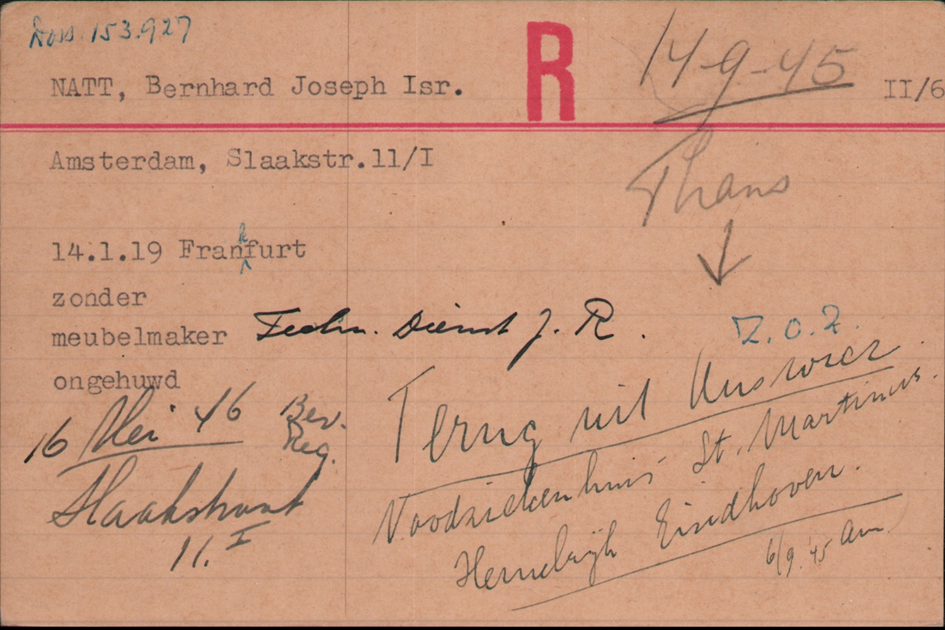 Doss. 153.927
NATT, Bernhard Joseph Isr.
R
14-9-45
II/6
Amsterdam, Slaakstr.11/I
Thans
14.1.19 Frankfurt
zonder
meubelmaker Techn. Dienst J. R.
Z.O.Z.
ongehuwd
Terug uit Auswicz
16 Mei 46 Bev. Reg.
Noodziekenhuis St. Martinus.
Slaakstraat
11.I
Eindhoven.
6/9 '45 Am.